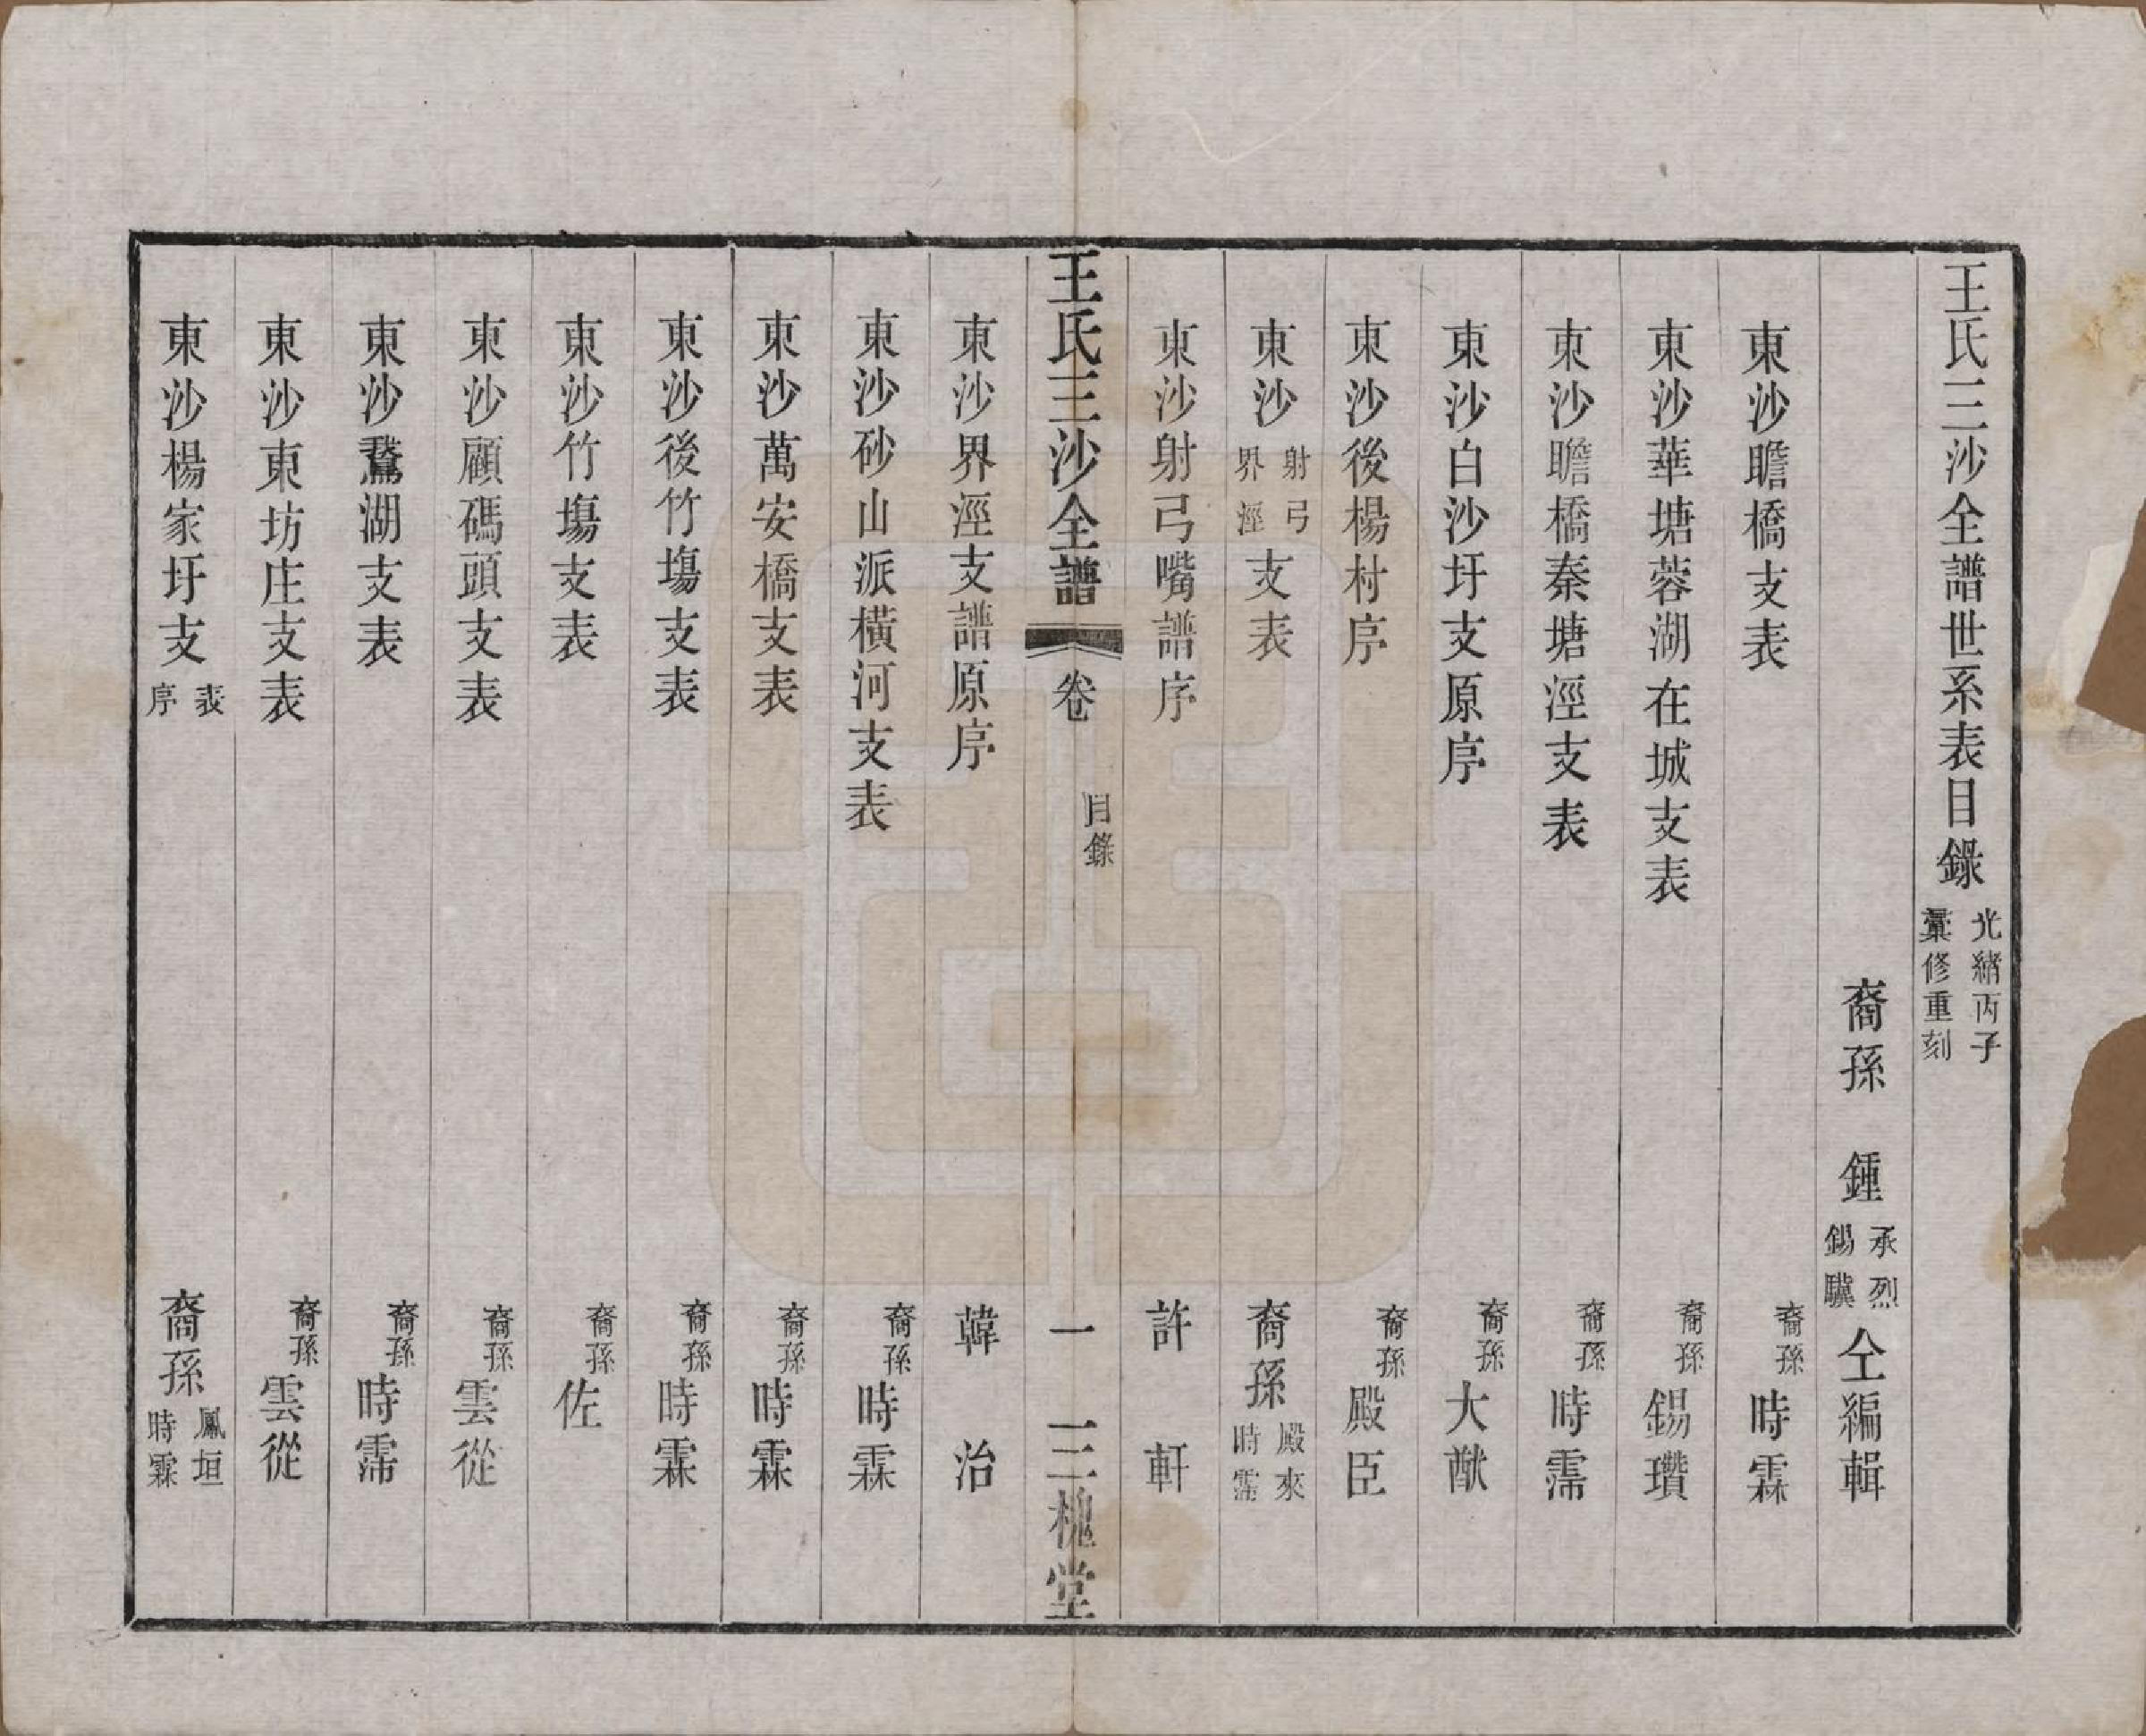 王氏三沙全譜世系表目錄 光緒丙子彚修重刻
裔孫 鍾 承烈 錫驥 仝編輯
東沙瞻橋支表 裔孫時霖
東沙華塘蓉湖在城支表 裔孫錫瓚
東沙瞻橋秦塘涇支表 裔孫時霈
東沙白沙圩支原序 裔孫大猷
東沙後楊村序 裔孫殿臣
東沙射弓界涇支表 裔孫 殿來 時霈
東沙射弓嘴譜序 許軒
王氏三沙全譜 卷 目錄 一 三槐堂
東沙界涇支譜原序 韓治
東沙砂山派橫河支表 裔孫時霖
東沙萬安橋支表 裔孫時霖
東沙後竹塲支表 裔孫時霖
東沙竹塲支表 裔孫佐
東沙顧碼頭支表 裔孫雲從
東沙鵞湖支表 裔孫時霈
東沙東坊庄支表 裔孫雲從
東沙楊家圩支表序 裔孫 鳳垣 時霖